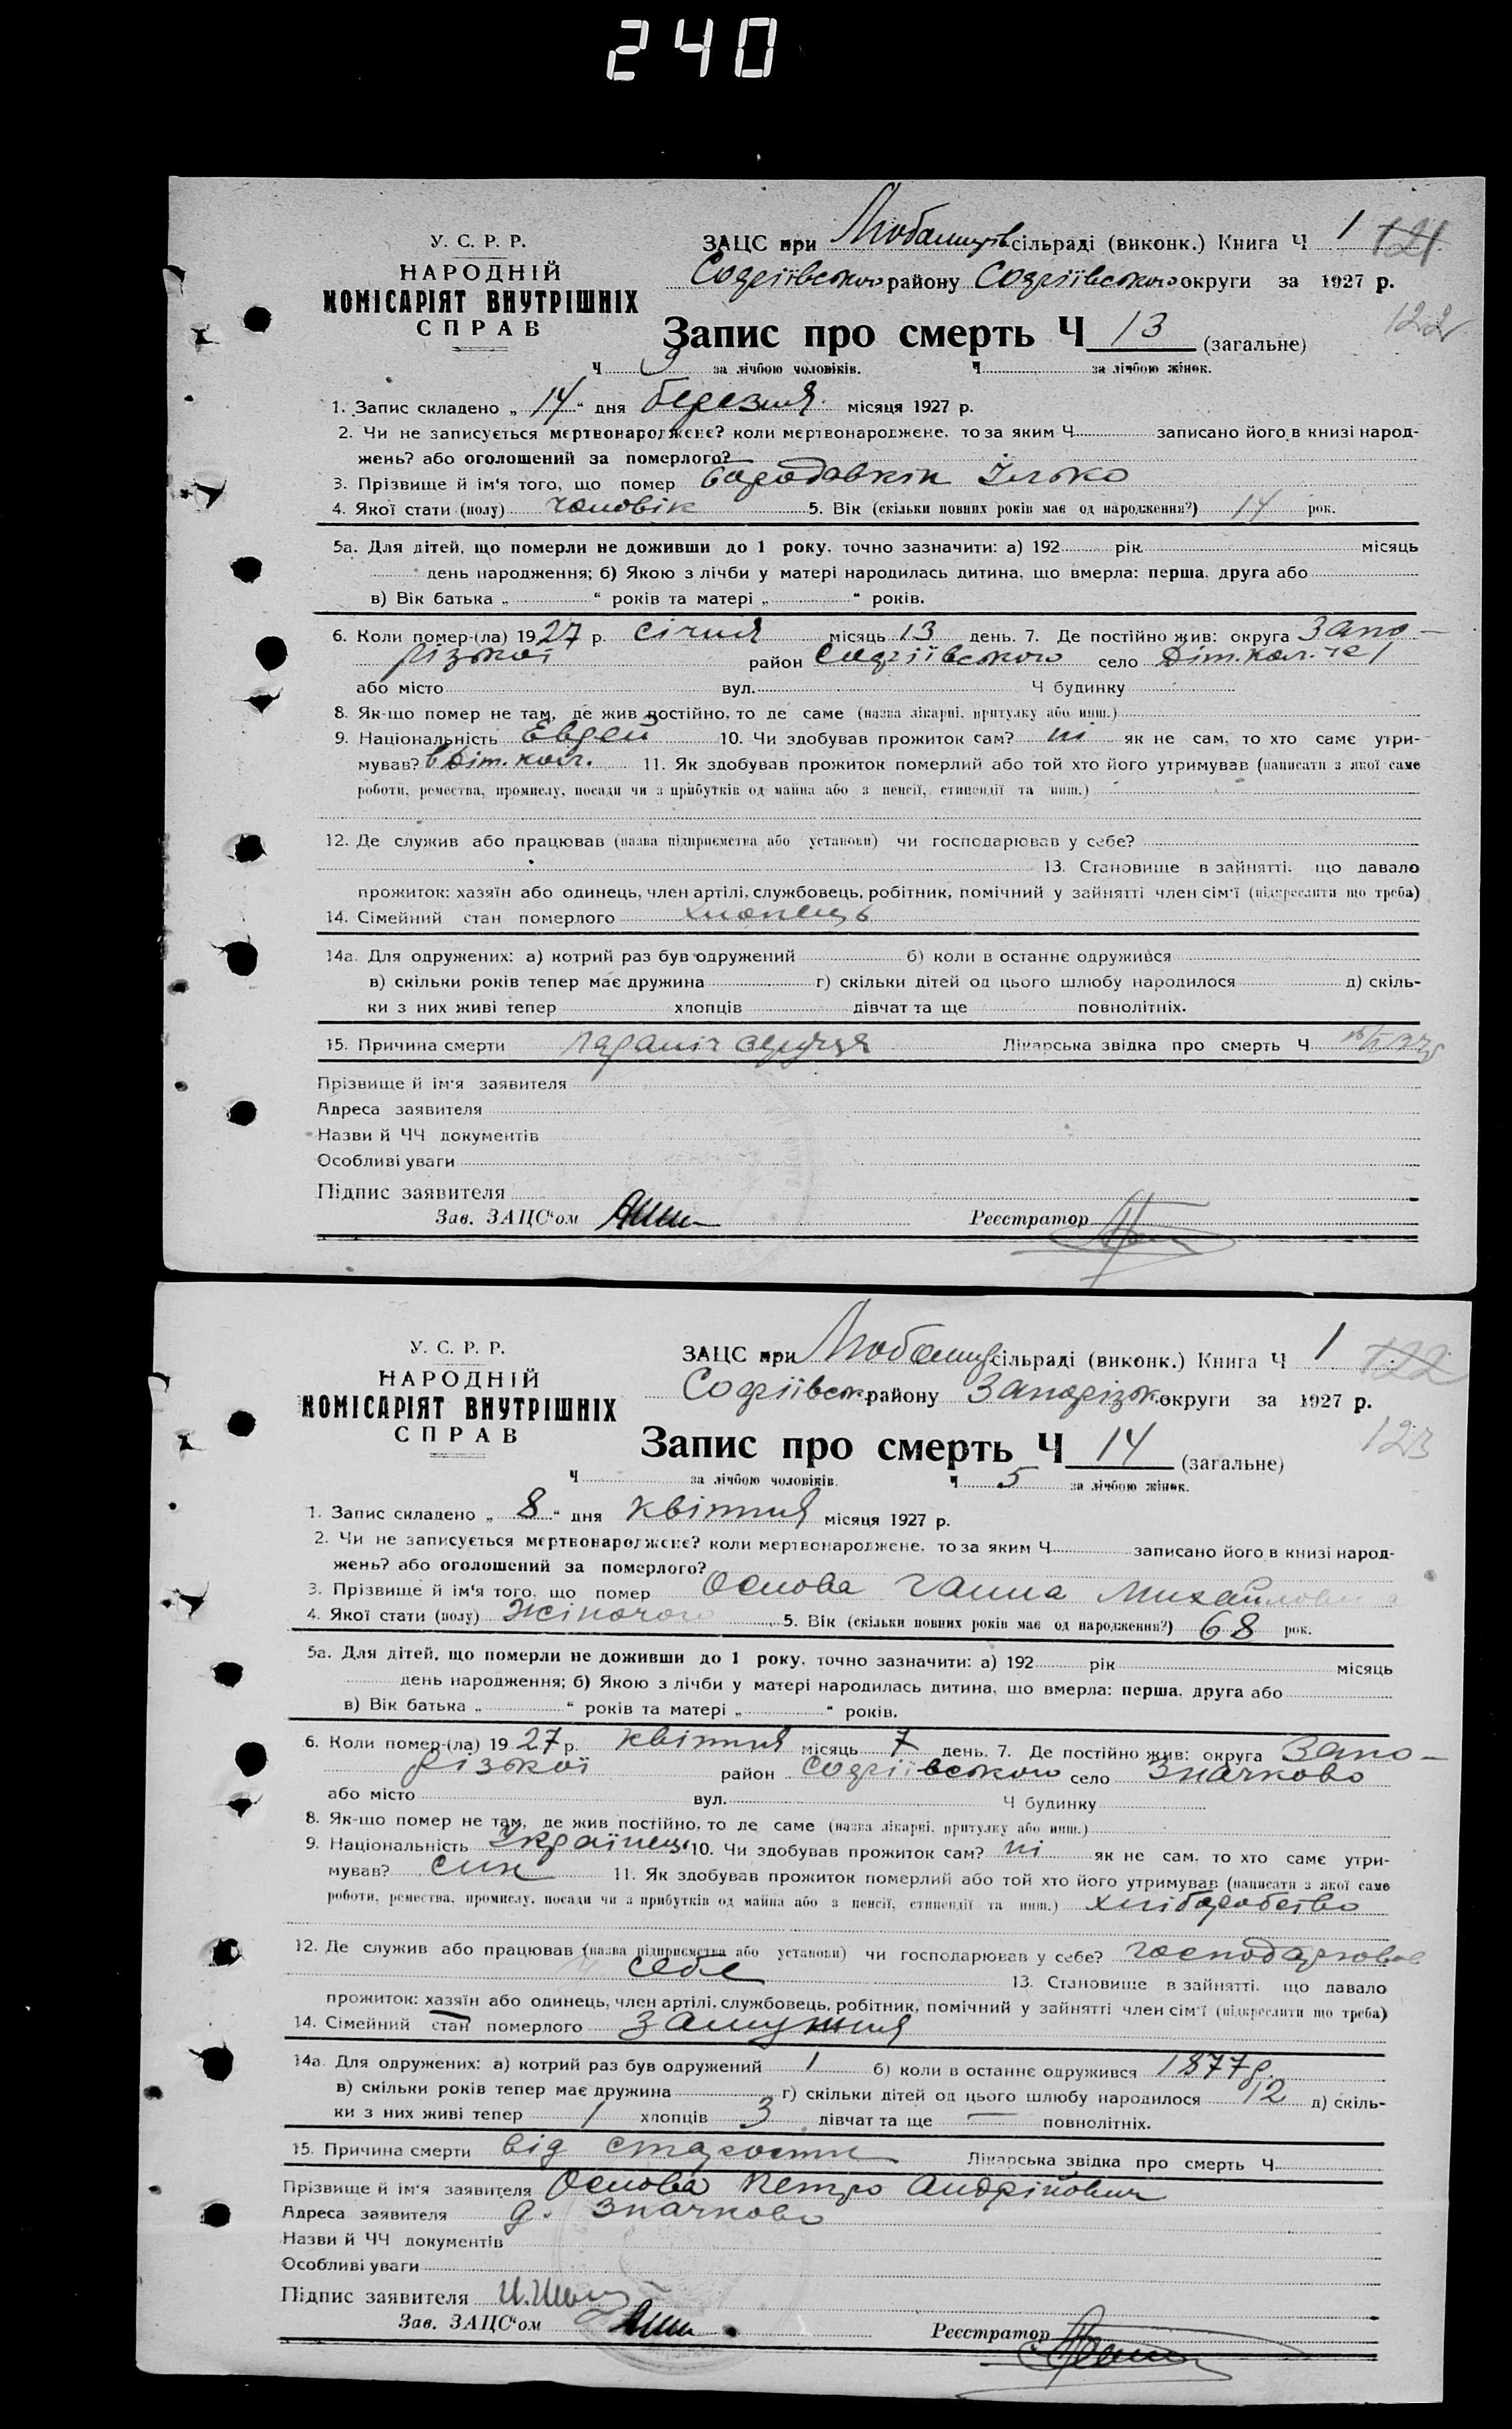 240
У. С. Р. Р.
НАРОДНІЙ
КОМІСАРІЯТ ВНУТРІШНІХ
СПРАВ
ЗАЦС при сільраді (виконк.) Книга Ч 1 121
Софіївського району Софіївського округи за 1927 р.
122
Запис про смерть Ч 13 (загальне)
Ч за лічбою чоловіків. Ч за лічбою жінок.
1. Запис складено „ 14 “ дня березня місяця 1927 р.
2. Чи не записується мертвонароджене? коли мертвонароджене, то за яким Ч записано його в книзі народ-
жень? або оголошений за померлого?
3. Прізвище й ім'я того, що помер Бородавкін Ілько
4. Якої стати (полу) чоловік 5. Вік (скільки повних років має од народження?) 14 рок.
5а. Для дітей, що померли не доживши до 1 року, точно зазначити: а) 192 рік місяць
день народження; б) Якою з лічби у матері народилась дитина, що вмерла: перша, друга або
в) Вік батька „ “ років та матері „ “ років.
6. Коли помер-(ла) 1927 р. січня місяць 13 день. 7. Де постійно жив: округа Запо-
різької район Софіївського село Діт. кол. № 1
або місто вул. Ч будинку
8. Як-що помер не там, де жив постійно, то де саме (назва лікарні, притулку або инш.)
9. Національність Еврей 10. Чи здобував прожиток сам? ні як не сам, то хто саме утри-
мував? в Діт. кол. 11. Як здобував прожиток померлий або той хто його утримував (написати з якої саме
роботи, ремества, промислу, посади чи з прибутків од майна або з пенсії, стипендії та инш.)
12. Де служив або працював (назва підприємства або установи) чи господарював у себе?
13. Становище в зайнятті, що давало
прожиток: хазяїн або одинець, член артілі, службовець, робітник, помічний у зайнятті член сім'ї (підкреслити що треба)
14. Сімейний стан померлого хлопець
14а. Для одружених: а) котрий раз був одружений б) коли в останнє одружився
в) скільки років тепер має дружина г) скільки дітей од цього шлюбу народилося д) скіль-
ки з них живі тепер хлопців дівчат та ще повнолітніх.
15. Причина смерти параліч серця Лікарська звідка про смерть Ч
Прізвище й ім'я заявителя
Адреса заявителя
Назви й ЧЧ документів
Особливі уваги
Підпис заявителя
Зав. ЗАЦС'ом Реєстратор
У. С. Р. Р.
НАРОДНІЙ
КОМІСАРІЯТ ВНУТРІШНІХ
СПРАВ
ЗАЦС при сільраді (виконк.) Книга Ч 1 122
Софіївськ району Запорізьк. округи за 1927 р.
123
Запис про смерть Ч 14 (загальне)
Ч за лічбою чоловіків. Ч 5 за лічбою жінок.
1. Запис складено „ 8 “ дня квітня місяця 1927 р.
2. Чи не записується мертвонароджене? коли мертвонароджене, то за яким Ч записано його в книзі народ-
жень? або оголошений за померлого?
3. Прізвище й ім'я того, що помер Основа Ганна Михайловна
4. Якої стати (полу) Жіночого 5. Вік (скільки повних років має од народження?) 68 рок.
5а. Для дітей, що померли не доживши до 1 року, точно зазначити: а) 192 рік місяць
день народження; б) Якою з лічби у матері народилась дитина, що вмерла: перша, друга або
в) Вік батька „ “ років та матері „ “ років.
6. Коли помер-(ла) 1927 р. квітня місяць 7 день. 7. Де постійно жив: округа Запо-
різької район Софіївського село Значково
або місто вул. Ч будинку
8. Як-що помер не там, де жив постійно, то де саме (назва лікарні, притулку або инш.)
9. Національність Українець 10. Чи здобував прожиток сам? ні як не сам, то хто саме утри-
мував? син 11. Як здобував прожиток померлий або той хто його утримував (написати з якої саме
роботи, ремества, промислу, посади чи з прибутків од майна або з пенсії, стипендії та инш.) хліборобство
12. Де служив або працював (назва підприємства або установи) чи господарював у себе? господарював
у себе 13. Становище в зайнятті, що давало
прожиток: хазяїн або одинець, член артілі, службовець, робітник, помічний у зайнятті член сім'ї (підкреслити що треба)
14. Сімейний стан померлого замужня
14а. Для одружених: а) котрий раз був одружений 1 б) коли в останнє одружився 1877 р.
в) скільки років тепер має дружина г) скільки дітей од цього шлюбу народилося 12 д) скіль-
ки з них живі тепер 1 хлопців 3 дівчат та ще — повнолітніх.
15. Причина смерти від старости Лікарська звідка про смерть Ч
Прізвище й ім'я заявителя Основа Петро Андрійович
Адреса заявителя д. Значково
Назви й ЧЧ документів
Особливі уваги
Підпис заявителя
Зав. ЗАЦС'ом Реєстратор